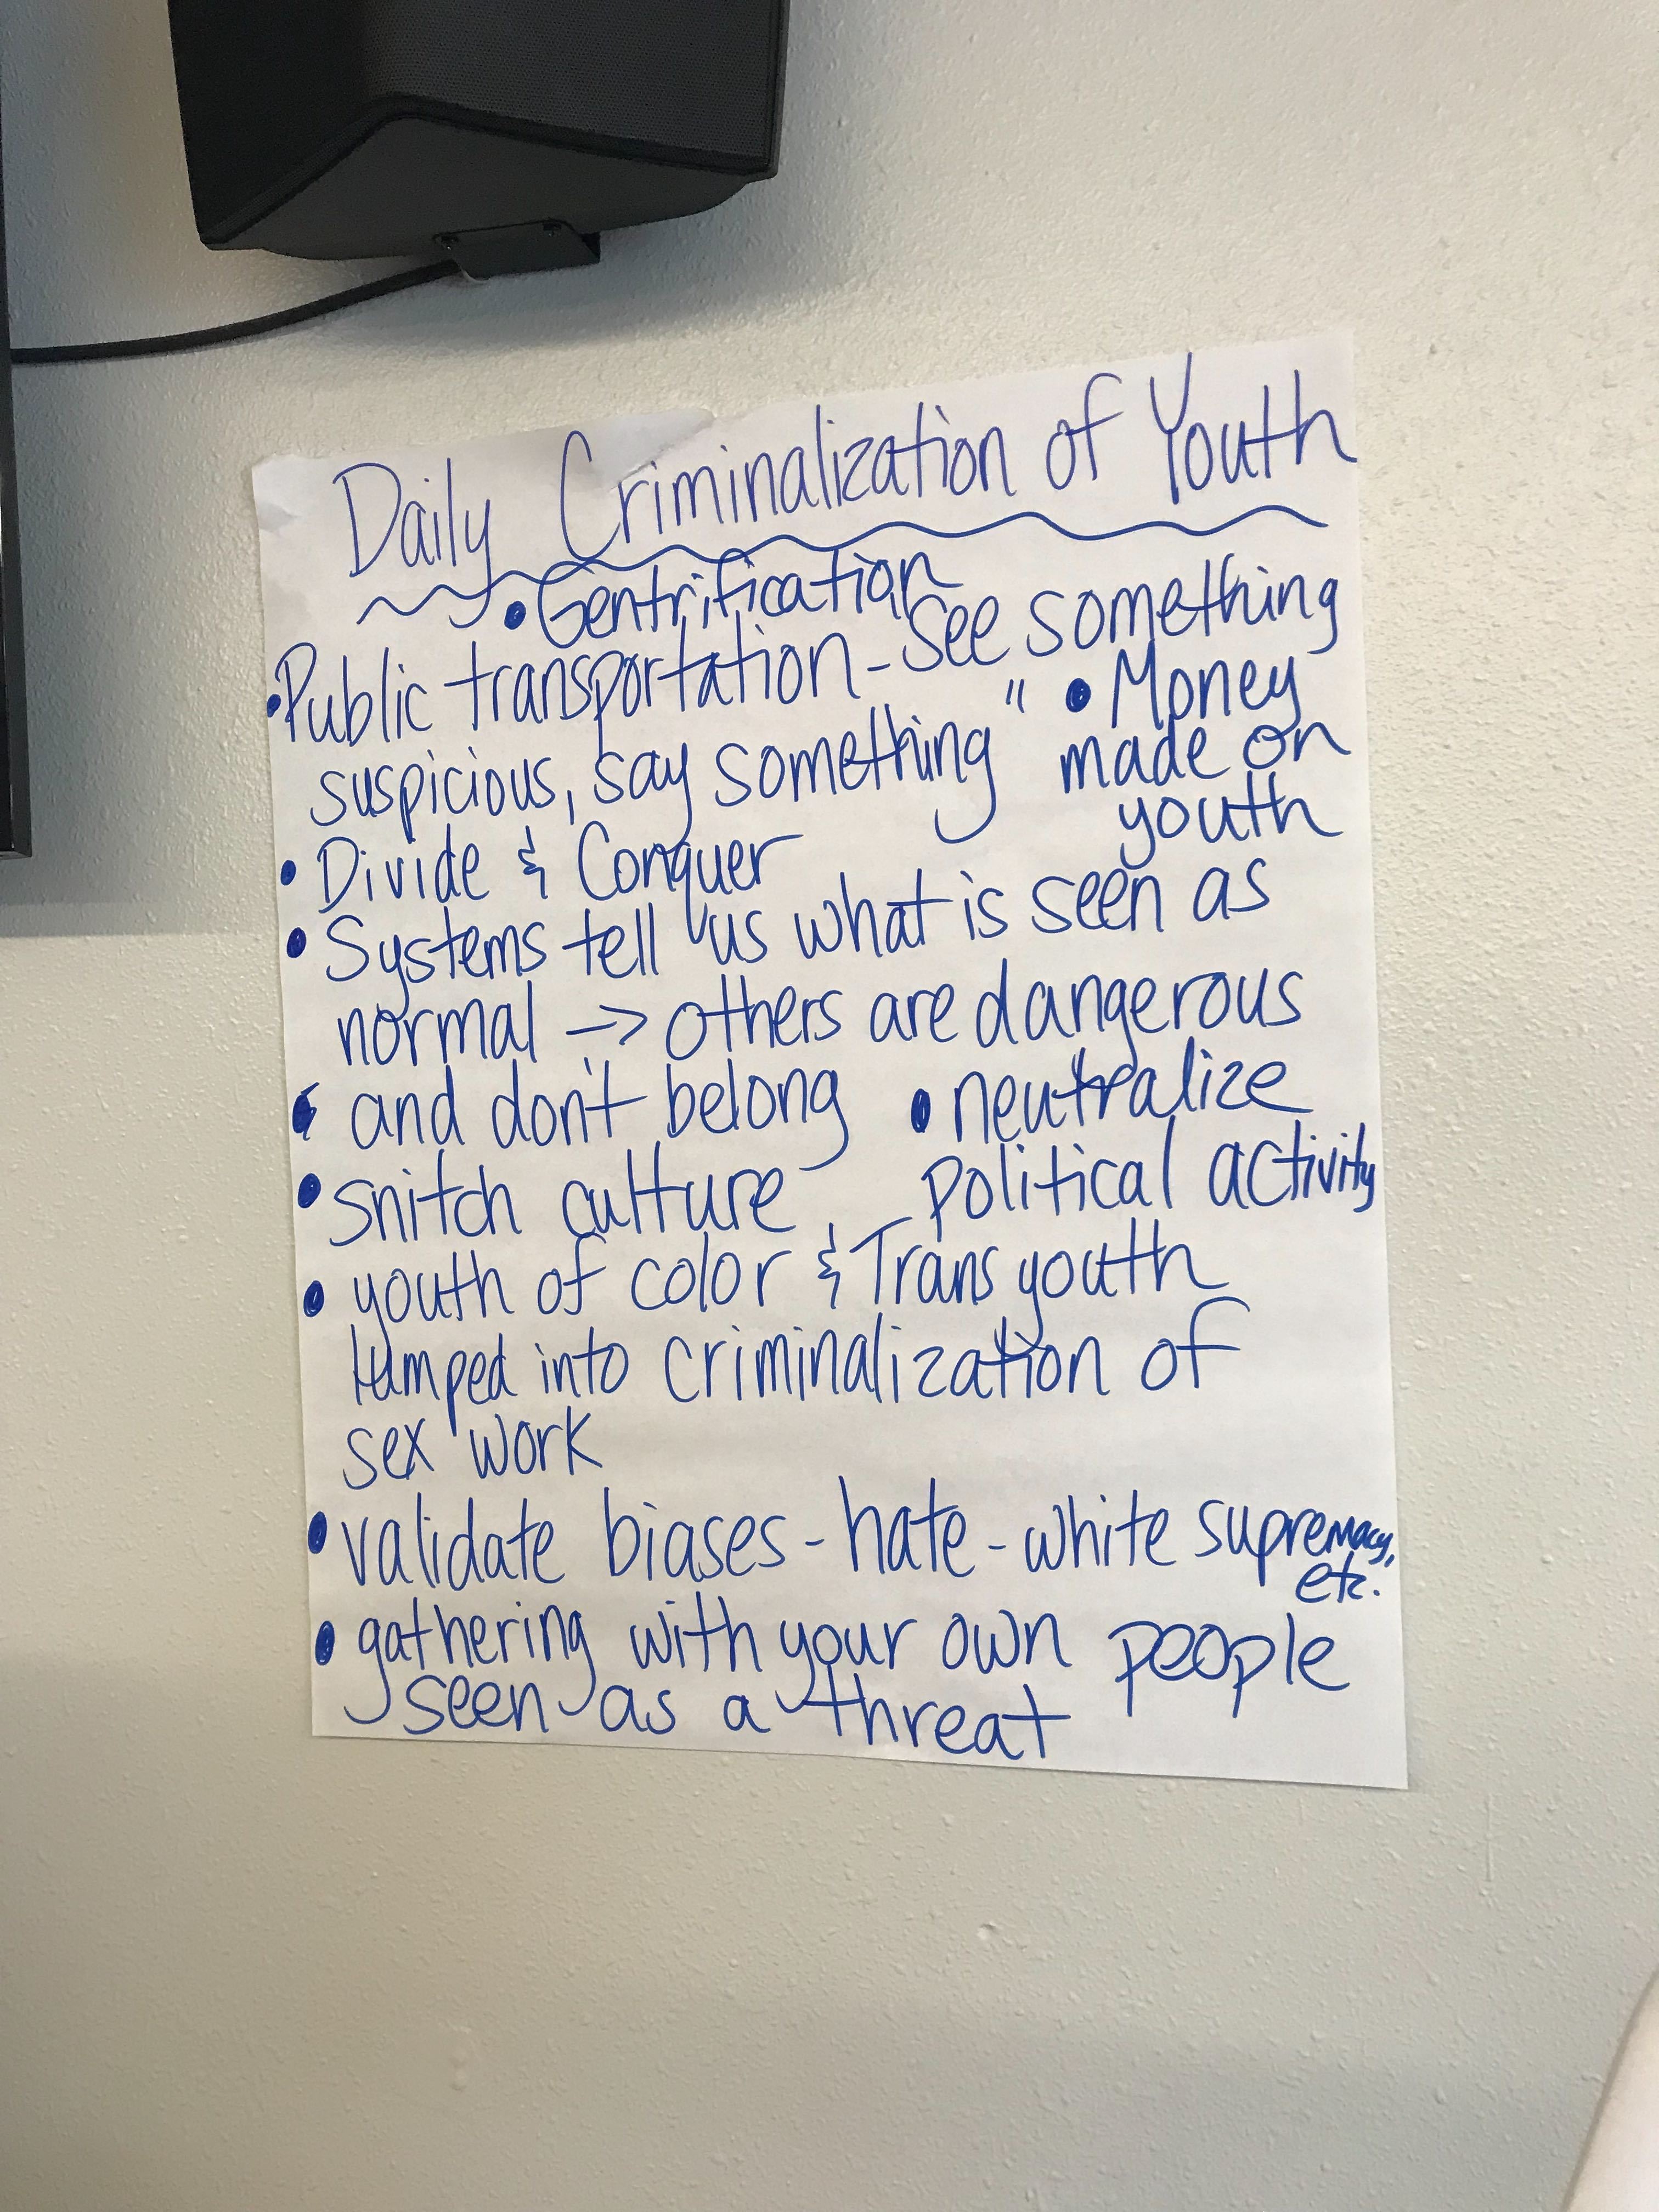 Daily Criminalization of Youth
• Gentrification
• Public transportation - See something
suspicious, say something"
• Money
made on
youth
• Divide & Conquer
• Systems tell us what is seen as
normal -> others are dangerous
• and don't belong
• neutralize
political activity
• snitch culture
• youth of color & Trans youth
lumped into criminalization of
sex work
• validate biases - hate - white supremacy,
etc.
• gathering with your own people
seen as a threat